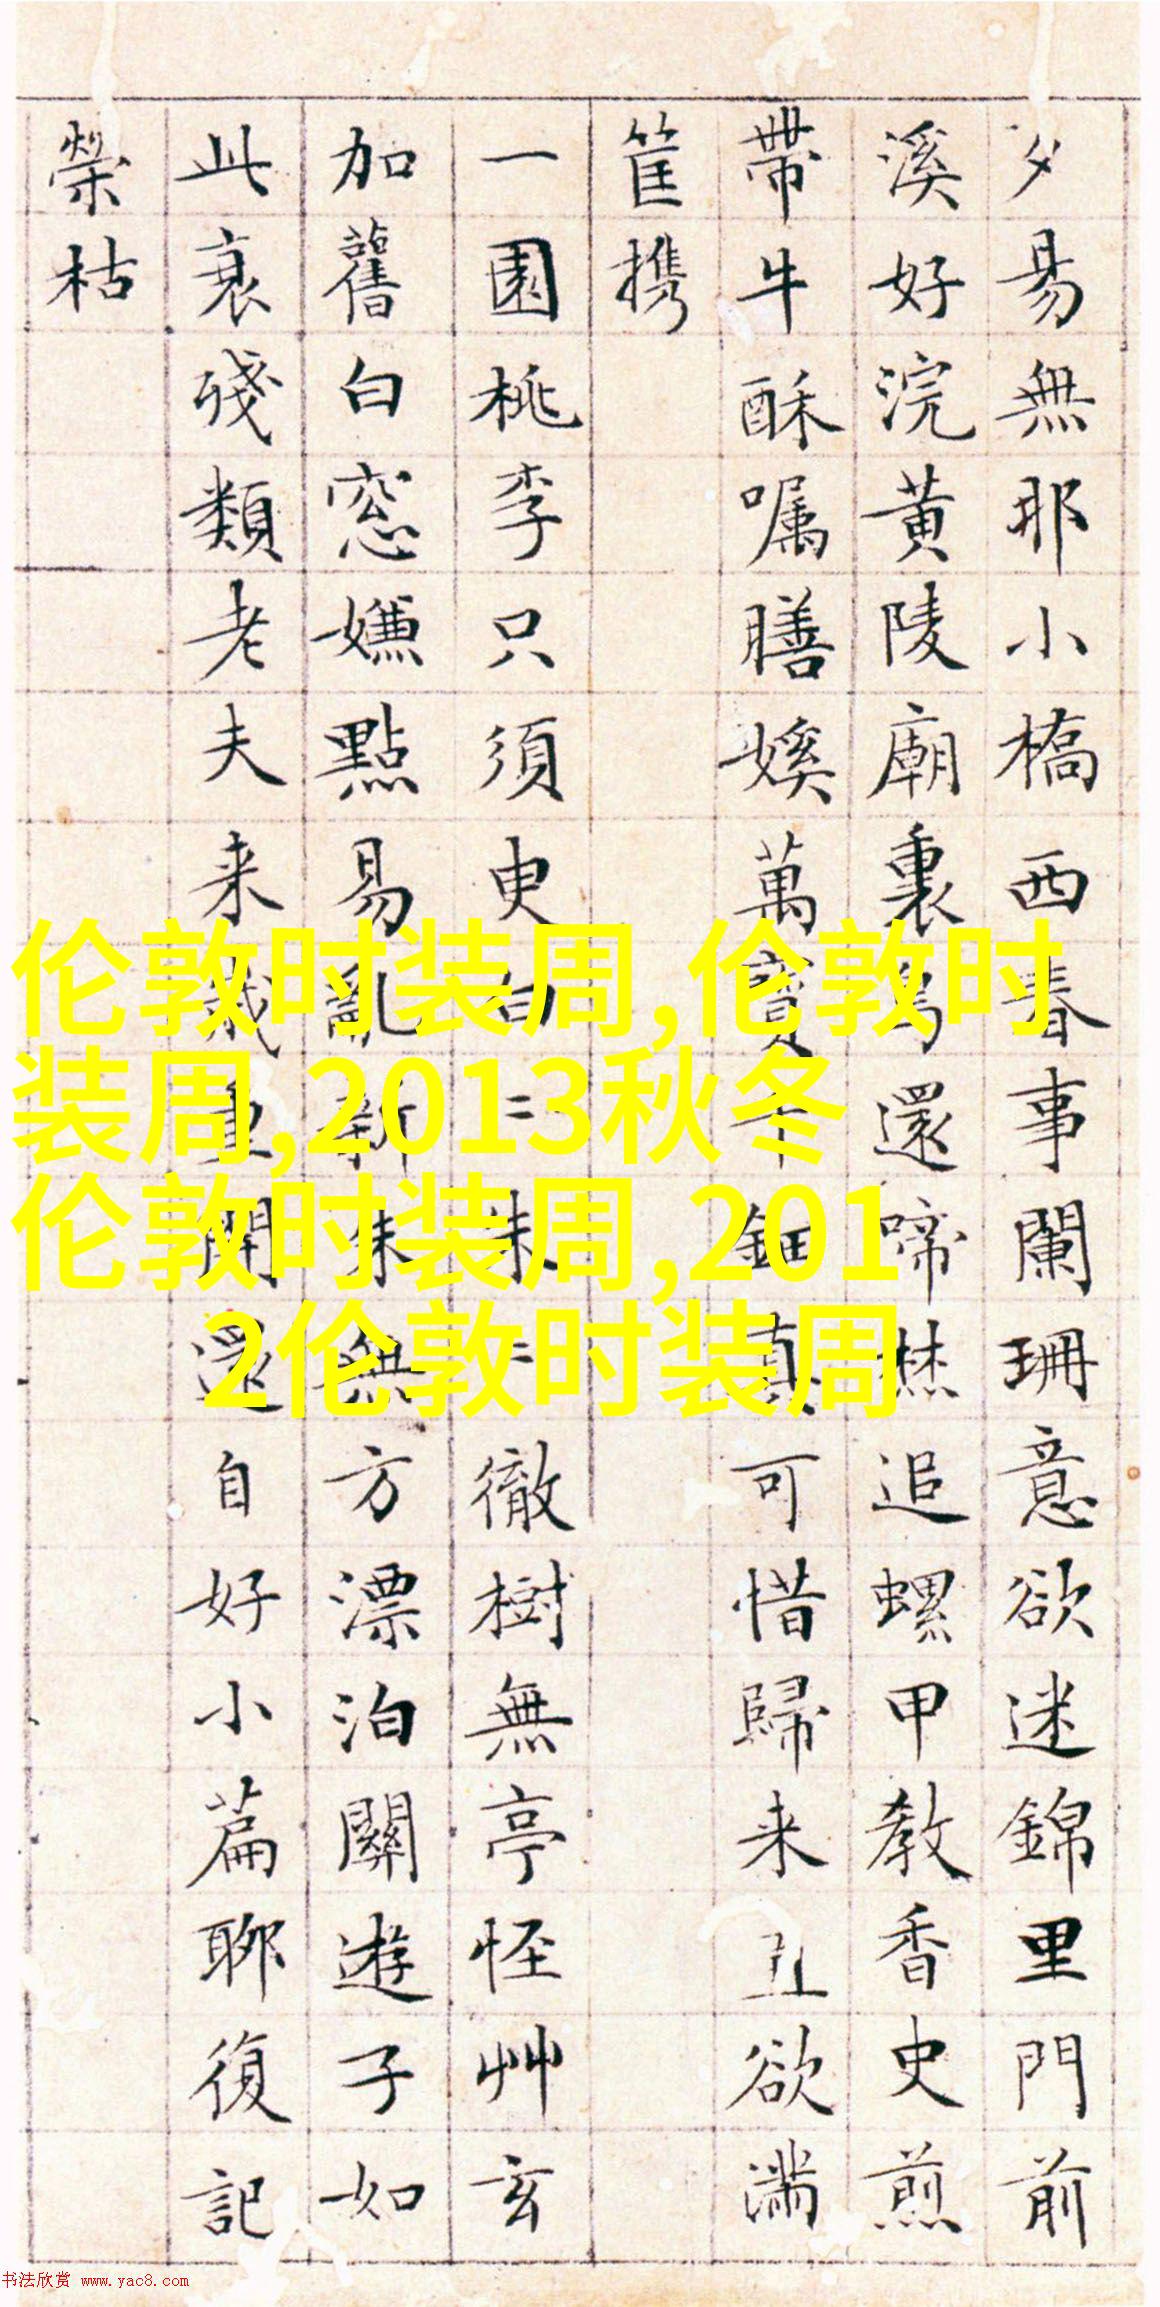 夕易無耶小橋西春事闌珊意欲迷錦里門前
溪好浣黃陵廟裏還啼追螺甲教香史煎
帶牛酥囑膳萬寶千鈿真可惜歸来丑欲滿
筐携
一園桃李只須臾白〻朱〻徹樹無亭怪艸玄
加舊白窓嫌點易亂新朱無方漂泊關遊子如
此衰殘類老夫来歲重開還自好小篇聊復記
榮枯
伦敦时装周,伦敦时
装周,2013秋冬
伦敦时装周,201
2伦敦时装周
书法欣赏 www.yac8.com